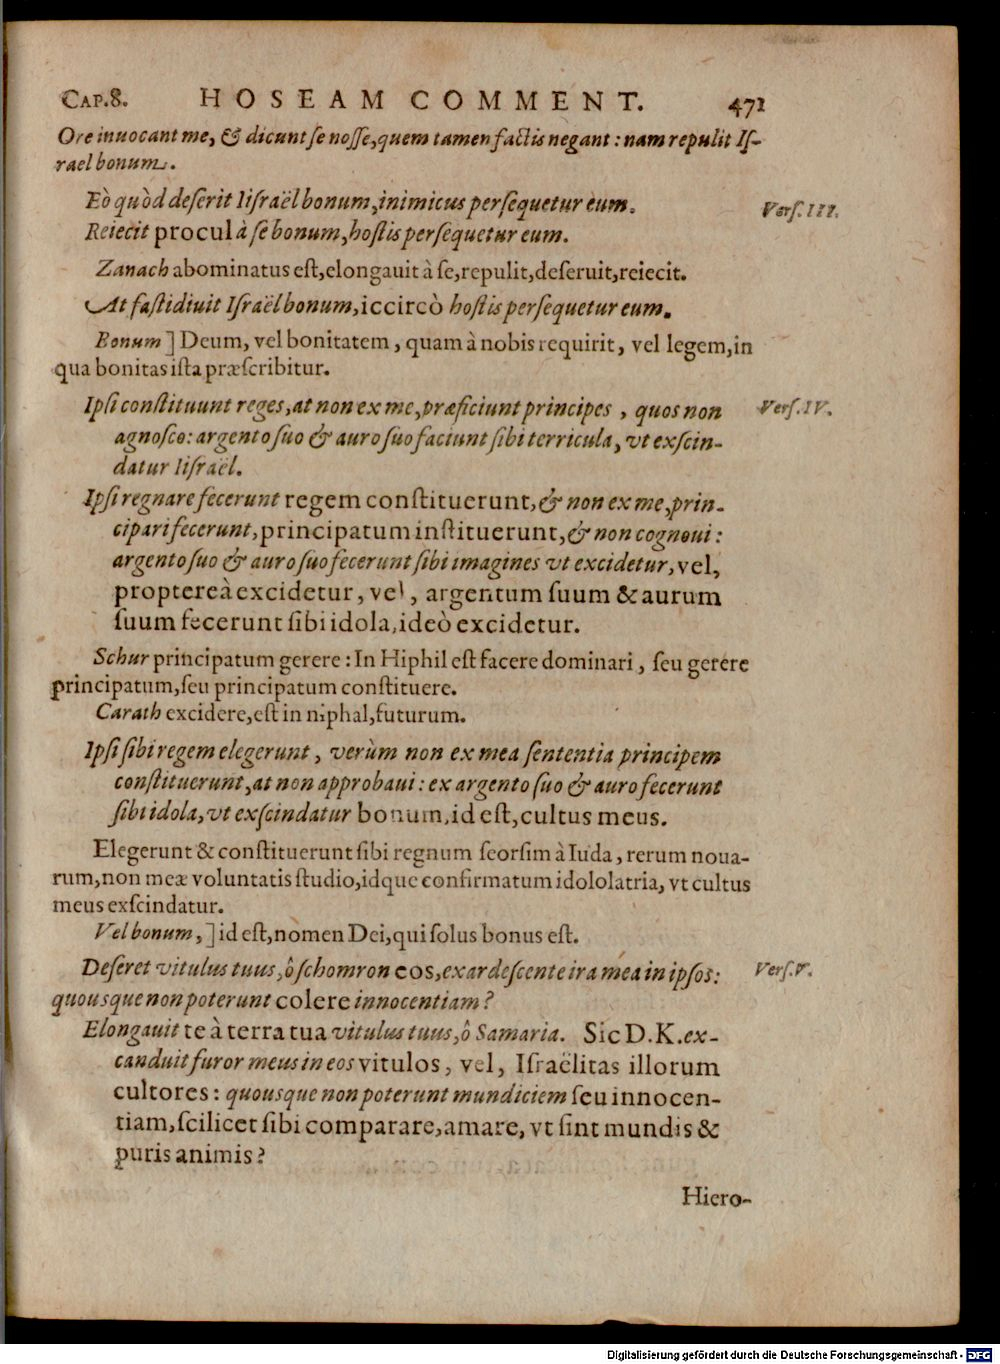 CAP.8. HOSEAM COMMENT. 471
Ore inuocant me, & dicunt se nosse, quem tamen factis negant: nam repulit Is-
rael bonum.
Eò quòd deserit Iisraël bonum, inimicus persequetur eum. Vers.III.
Reiecit procul à se bonum, hostis persequetur eum.
Zanach abominatus est, elongauit à se, repulit, deseruit, reiecit.
At fastidiuit Israël bonum, iccircò hostis persequetur eum.
Bonum] Deum, vel bonitatem, quam à nobis requirit, vel legem, in
qua bonitas ista præscribitur.
Ipsi constituunt reges, at non ex me, præficiunt principes, quos non Vers.IV.
agnosco: argento suo & auro suo faciunt sibi terricula, vt exscin-
datur Iisraël.
Ipsi regnare fecerunt regem constituerunt, & non ex me, prin-
cipari fecerunt, principatum instituerunt, & non cognoui:
argento suo & auro suo fecerunt sibi imagines vt excidetur, vel,
proptereà excidetur, vel, argentum suum & aurum
suum fecerunt sibi idola, ideò excidetur.
Schur principatum gerere: In Hiphil est facere dominari, seu gerere
principatum, seu principatum constituere.
Carath excidere, est in niphal, futurum.
Ipsi sibi regem elegerunt, verùm non ex mea sententia principem
constituerunt, at non approbaui: ex argento suo & auro fecerunt
sibi idola, vt exscindatur bonum, id est, cultus meus.
Elegerunt & constituerunt sibi regnum seorsim à Iuda, rerum noua-
rum, non meæ voluntatis studio, idque confirmatum idololatria, vt cultus
meus exscindatur.
Vel bonum,] id est, nomen Dei, qui solus bonus est.
Deseret vitulus tuus, ô schomron eos, exardescente ira mea in ipsos: Vers.V.
quousque non poterunt colere innocentiam?
Elongauit te à terra tua vitulus tuus, ô Samaria. Sic D.K. ex-
canduit furor meus in eos vitulos, vel, Israëlitas illorum
cultores: quousque non poterunt mundiciem seu innocen-
tiam, scilicet sibi comparare, amare, vt sint mundis &
puris animis?
Hiero-
Digitalisierung gefördert durch die Deutsche Forschungsgemeinschaft - DFG